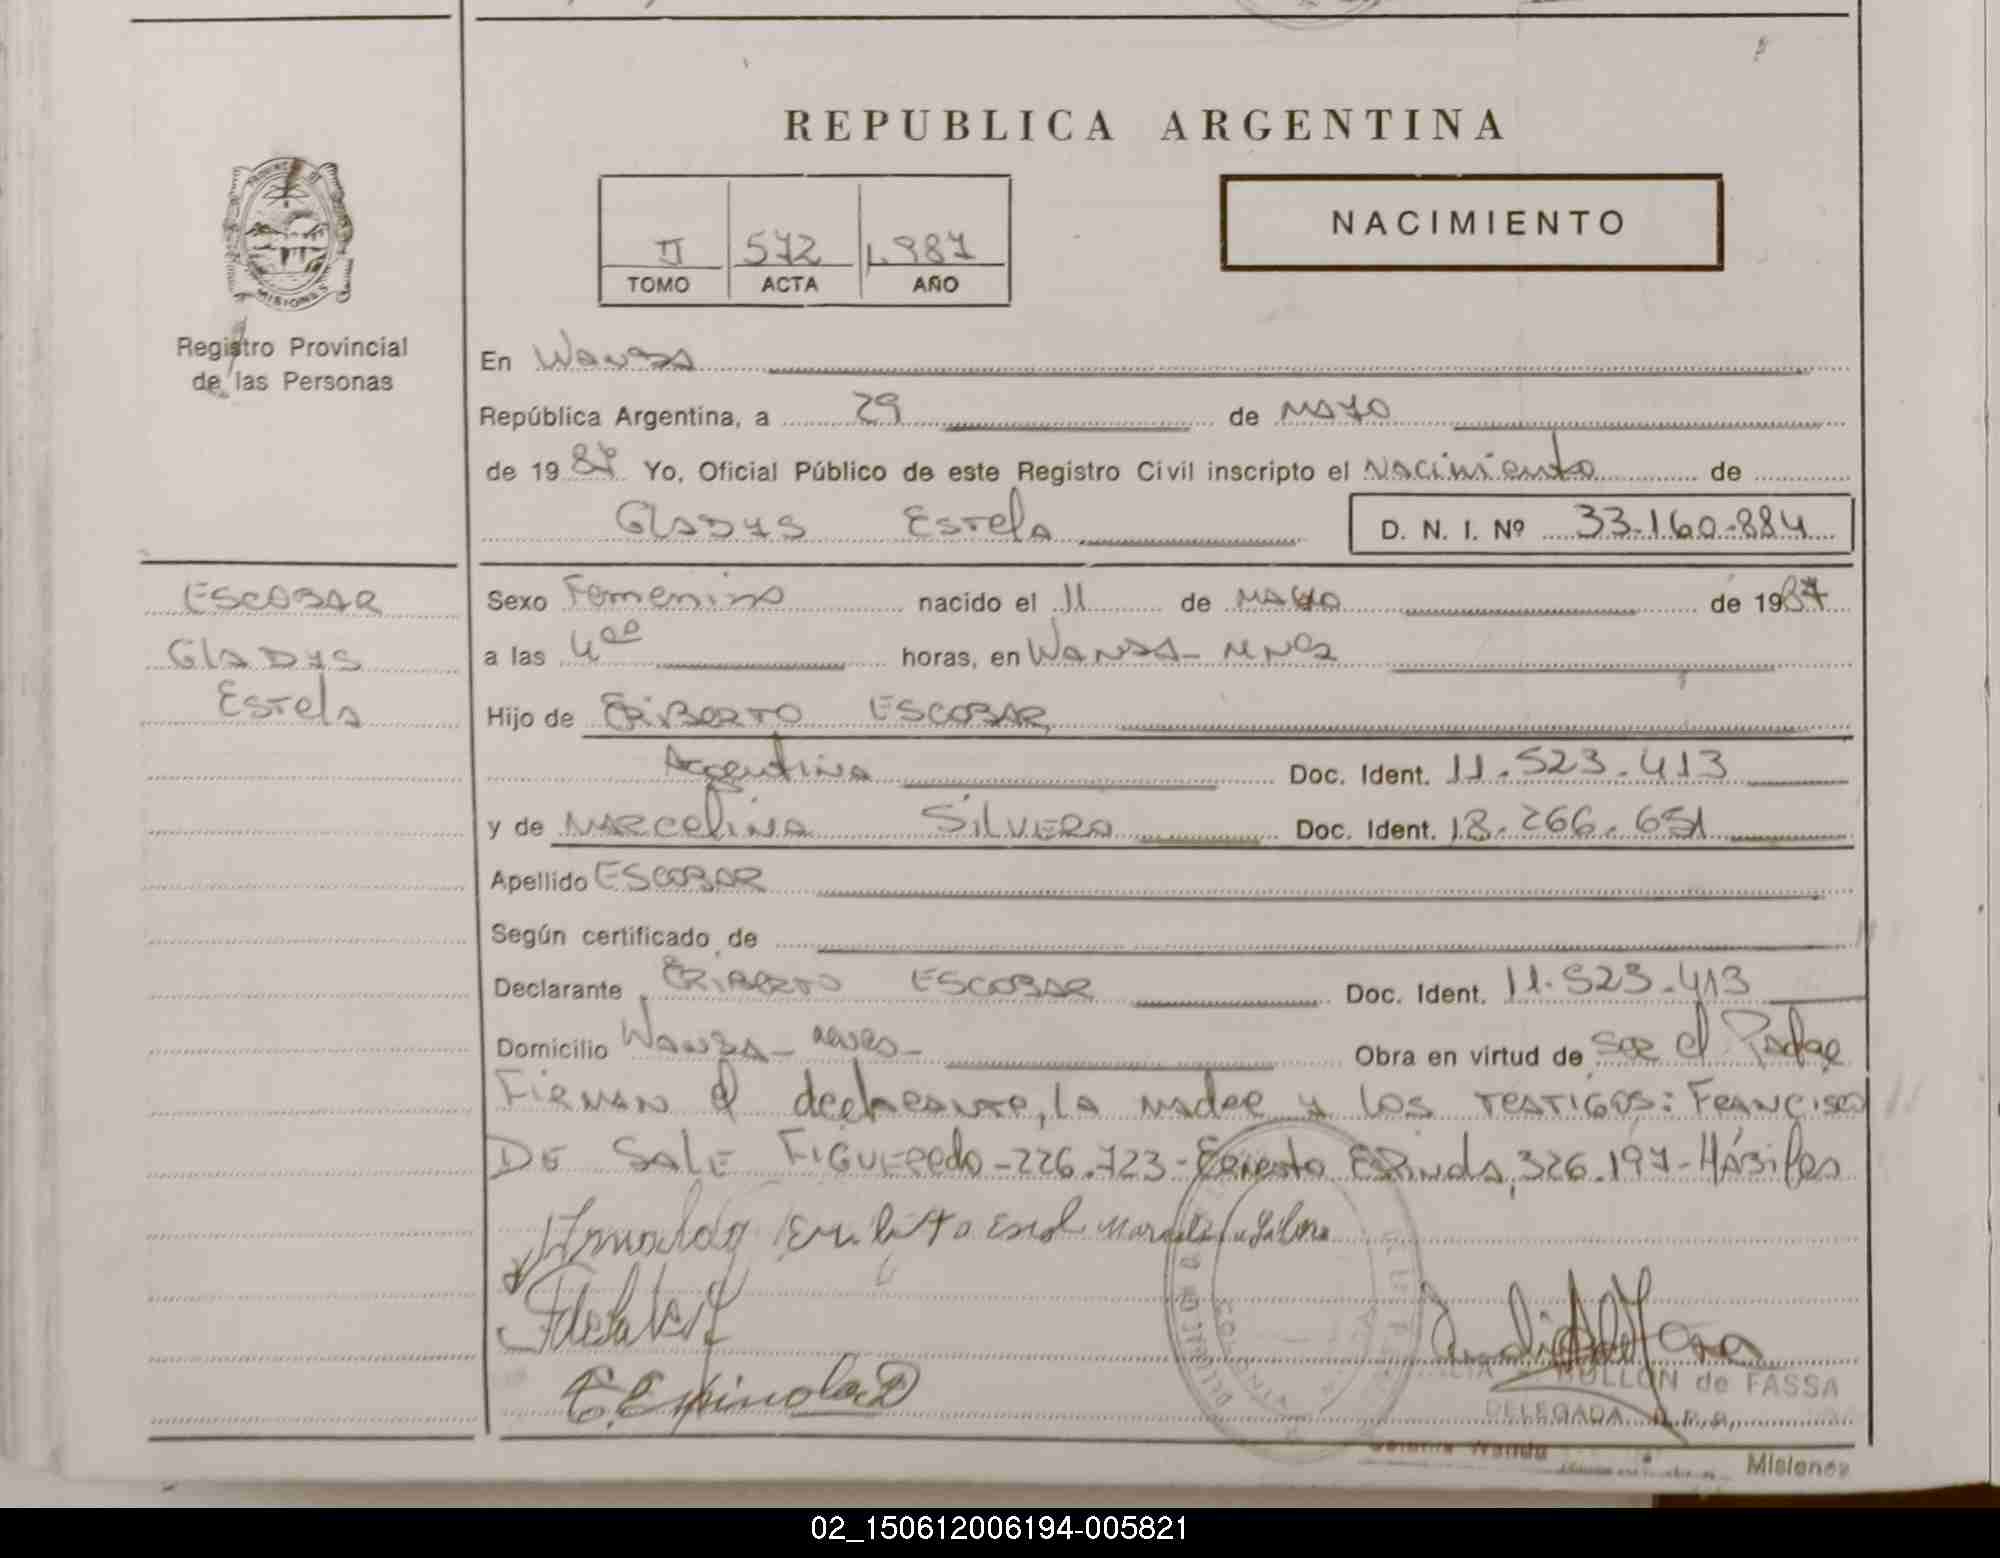 REPUBLICA ARGENTINA
NACIMIENTO
II 572 1.987
TOMO ACTA AÑO
PROVINCIA DE
MISIONES
Registro Provincial
de las Personas
En Wanda
República Argentina, a 29 de Mayo
de 1987 Yo, Oficial Público de este Registro Civil inscripto el Nacimiento de
Gladys Estela D. N. I. Nº 33.160.884
ESCOBAR
Gladys
Estela
Sexo Femenino nacido el 11 de Mayo de 1987
a las 4 00 horas, en Wanda - Mnes
Hijo de Eriberto ESCOBAR
Argentina Doc. Ident. 11.523.413
y de Marcelina Silvero Doc. Ident. 18.266.651
Apellido ESCOBAR
Según certificado de
Declarante Eriberto ESCOBAR Doc. Ident. 11.523.413
Domicilio Wanda - Obra en virtud de ser el Padre
Firman el declarante, la madre y los testigos: Francisco
De Sale Figueredo - 226.723 - Ernesto Espinola, 326.197 - Hábiles
E. Espinola
BULLON de FASSA
DELEGADA R.P.P.
Colonia Wanda
Misiones
02_150612006194-005821